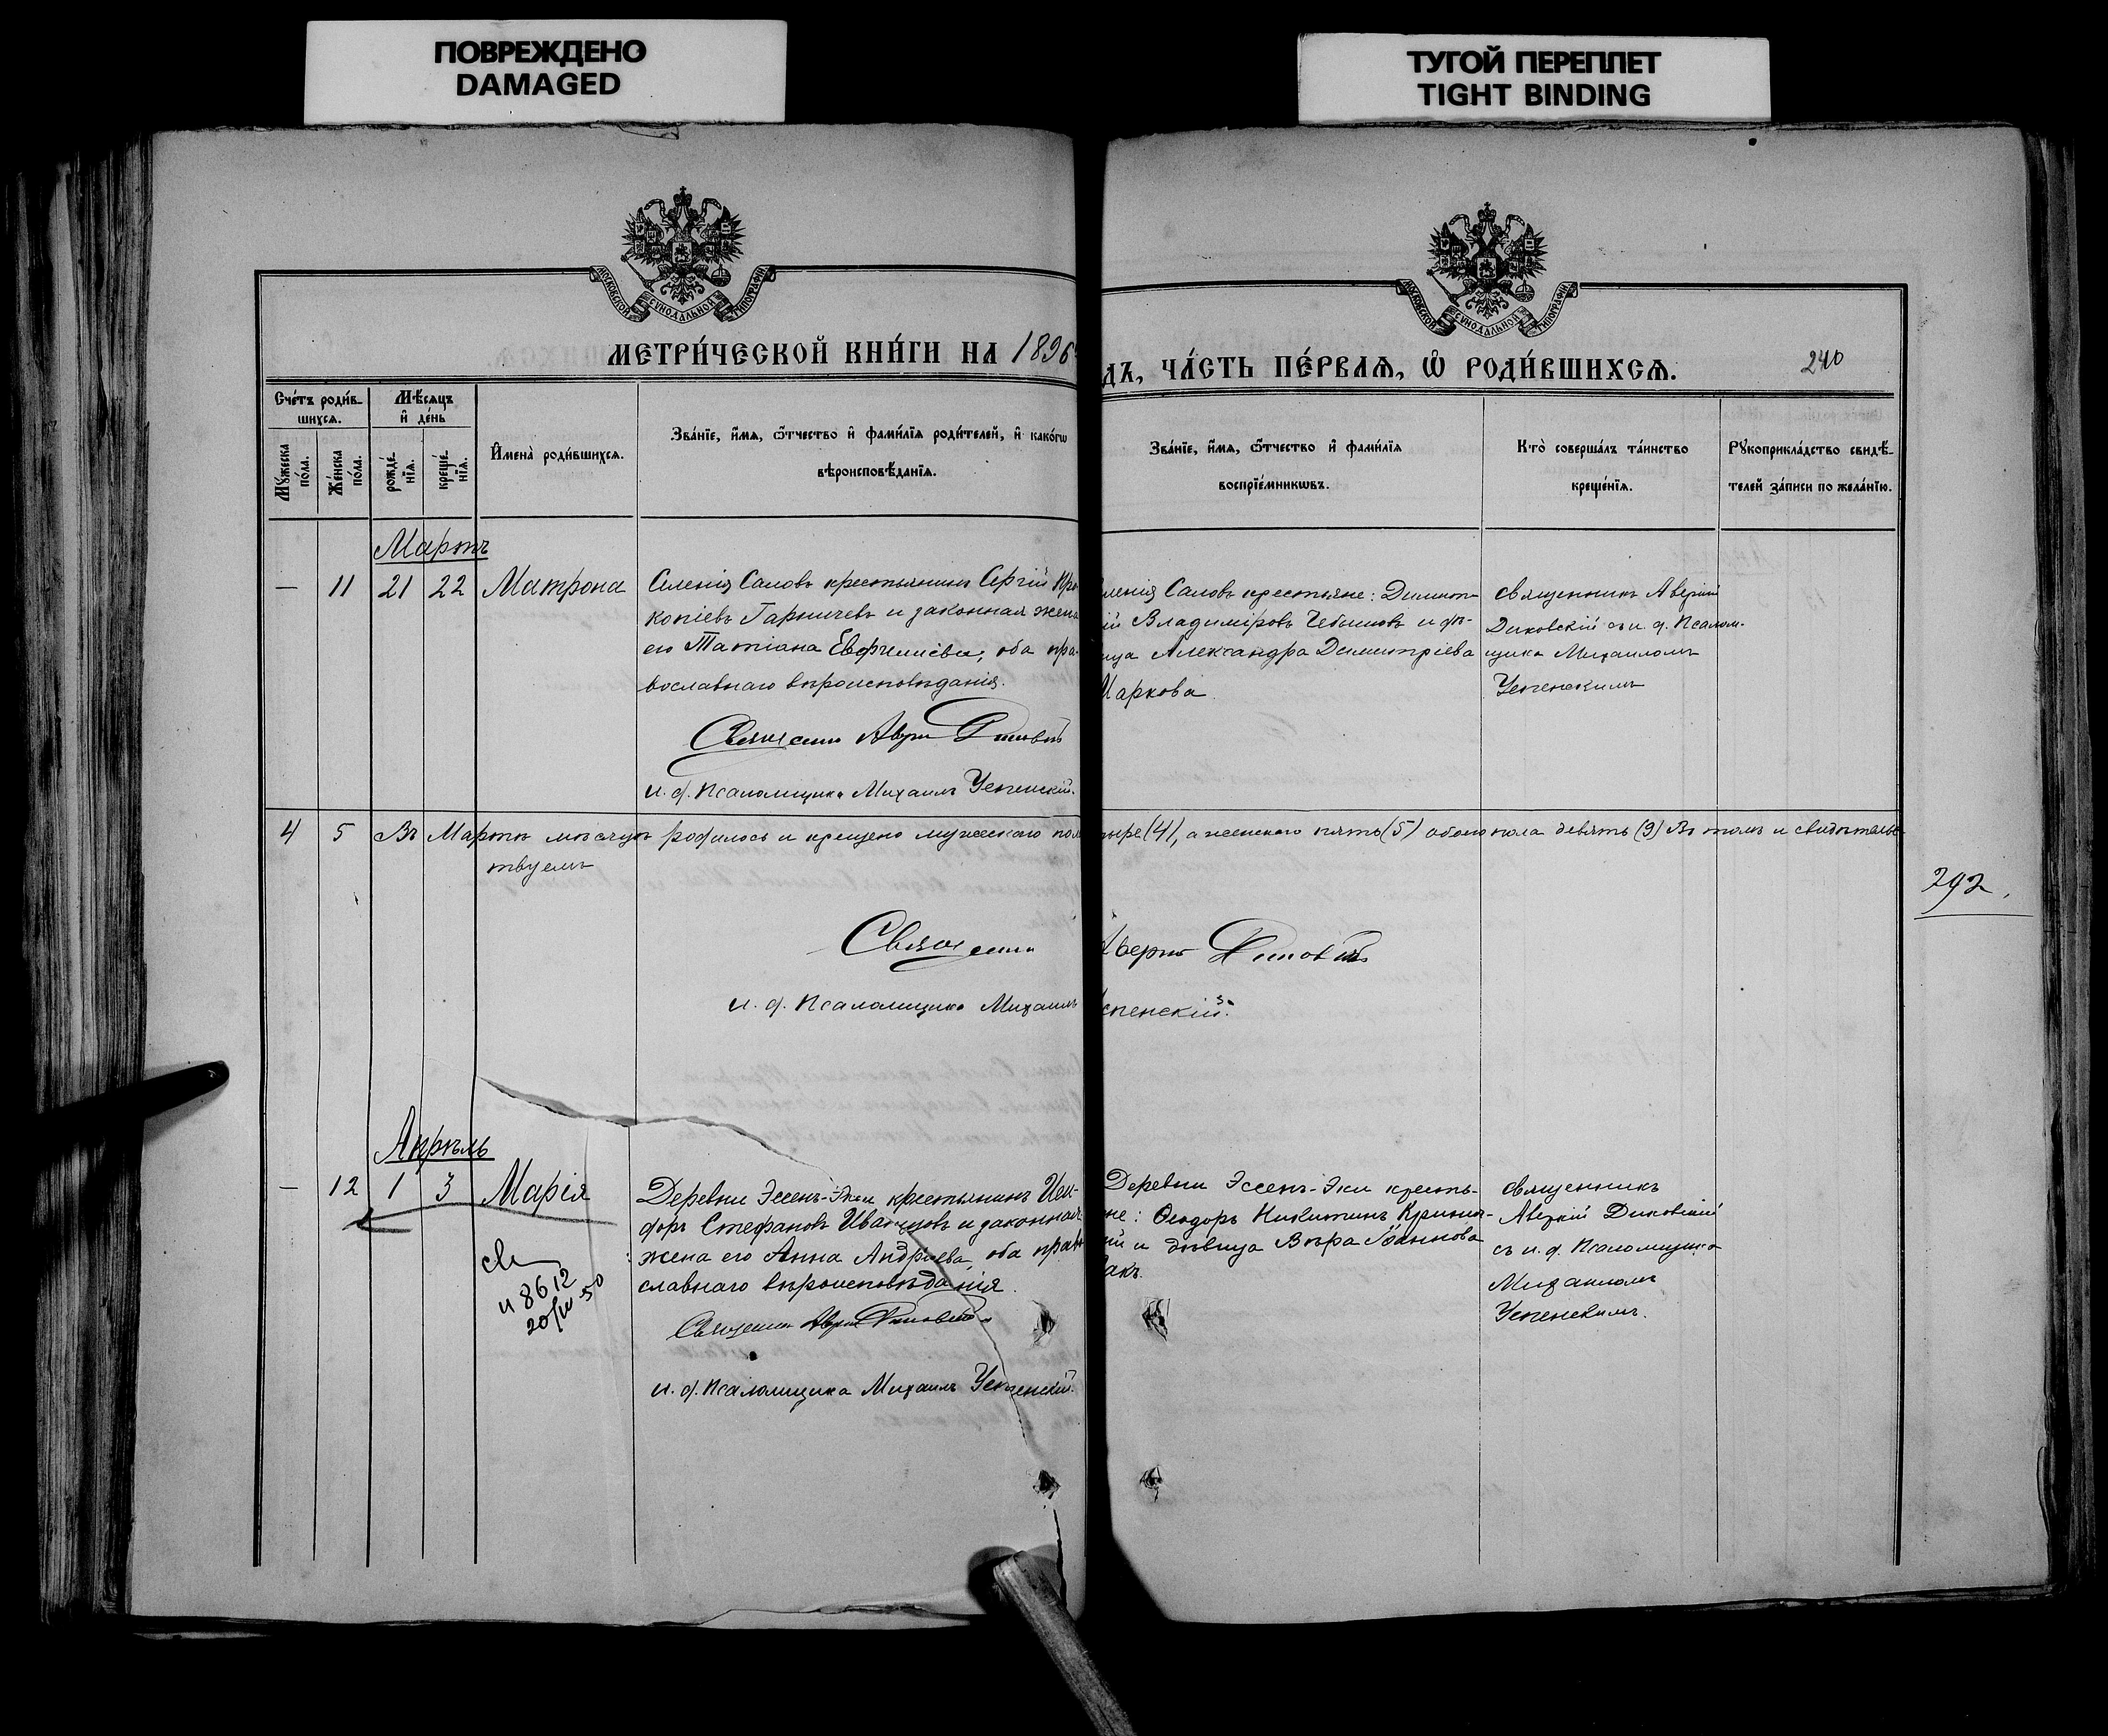 ПОВРЕЖДЕНО
DAMAGED
ТУГОЙ ПЕРЕПЛЕТ
TIGHT BINDING
МОСКОВСКОЙ СѴНОДАЛЬНОЙ ТИПОГРАФІИ
МОСКОВСКОЙ СѴНОДАЛЬНОЙ ТИПОГРАФІИ
МЕТРИ́ЧЕСКОЙ КНИ́ГИ НА 1896
ДЪ, ЧА́СТЬ ПЕ́РВАѦ, Ѿ РОДИ́ВШИХСѦ.
240
Сче́тъ роди́в-
шихсѧ.
Мѣ́сѧцъ
и҆ де́нь
Мꙋ́жеска по́ла.
Же́нска по́ла.
рожде́-
нїѧ.
креще́-
нїѧ.
И҆мена̀ роди́вшихсѧ.
Зва́нїе, и҆́мѧ, ѻ҆́тчество и҆ фами́лїѧ роди́телей, и҆ како́гѡ
вѣроисповѣ́данїѧ.
Зва́нїе, и҆́мѧ, ѻ҆́тчество и҆ фами́лїѧ
воспрїе́мникѡвъ.
Кто̀ соверша́лъ та́инство
креще́нїѧ.
Рꙋкоприкла́дство свидѣ́-
телей за́писи по жела́нїю.
Мартъ
— 11 21 22 Матрона
Селенія Саловъ крестьянинъ Сергій Про
копіевъ и законная жена
его Татіана Евфиміева, оба пра-
вославнаго вѣроисповѣданія.
Священ Авер
и. д. Псаломщика Михаилъ Успенскій.
ленія Саловъ крестьяне: Димит-
ій Владиміровъ и дѣ-
ица Александра Димитріева
Маркова.
священникъ Аверкій
Диковскій съ и. д. Псалом-
щика Михаиломъ
Успенскимъ
4 5 Въ Мартѣ мѣсяцѣ родилось и крещено мужескаго пол
ыре (4), а женскаго пять (5) обоего пола девять (9) Въ томъ и свидѣтельс-
твуемъ
292
Священ
Аверкі
и. д. Псаломщика Михаилъ
спенскій.
Апрѣль
— 12 1 3 Марія
Деревни Эсень-Эки крестьянинъ Иси-
доръ Стефановъ Иванцовъ и законная
жена его Анна Андреева, оба прав
славнаго вѣроисповѣданія.
Священ Авер
и. д. Псаломщика Михаилъ Успенскій.
Деревни Эсень-Эки кресть-
не: Ѳеодоръ Никитинъ
ій и дѣвица Вѣра Іоаннова
акъ.
священникъ
Аверкій Диковскій
съ и. д. Псаломщика
Михаиломъ
Успенскимъ.
св
и 8612
20/IV-50